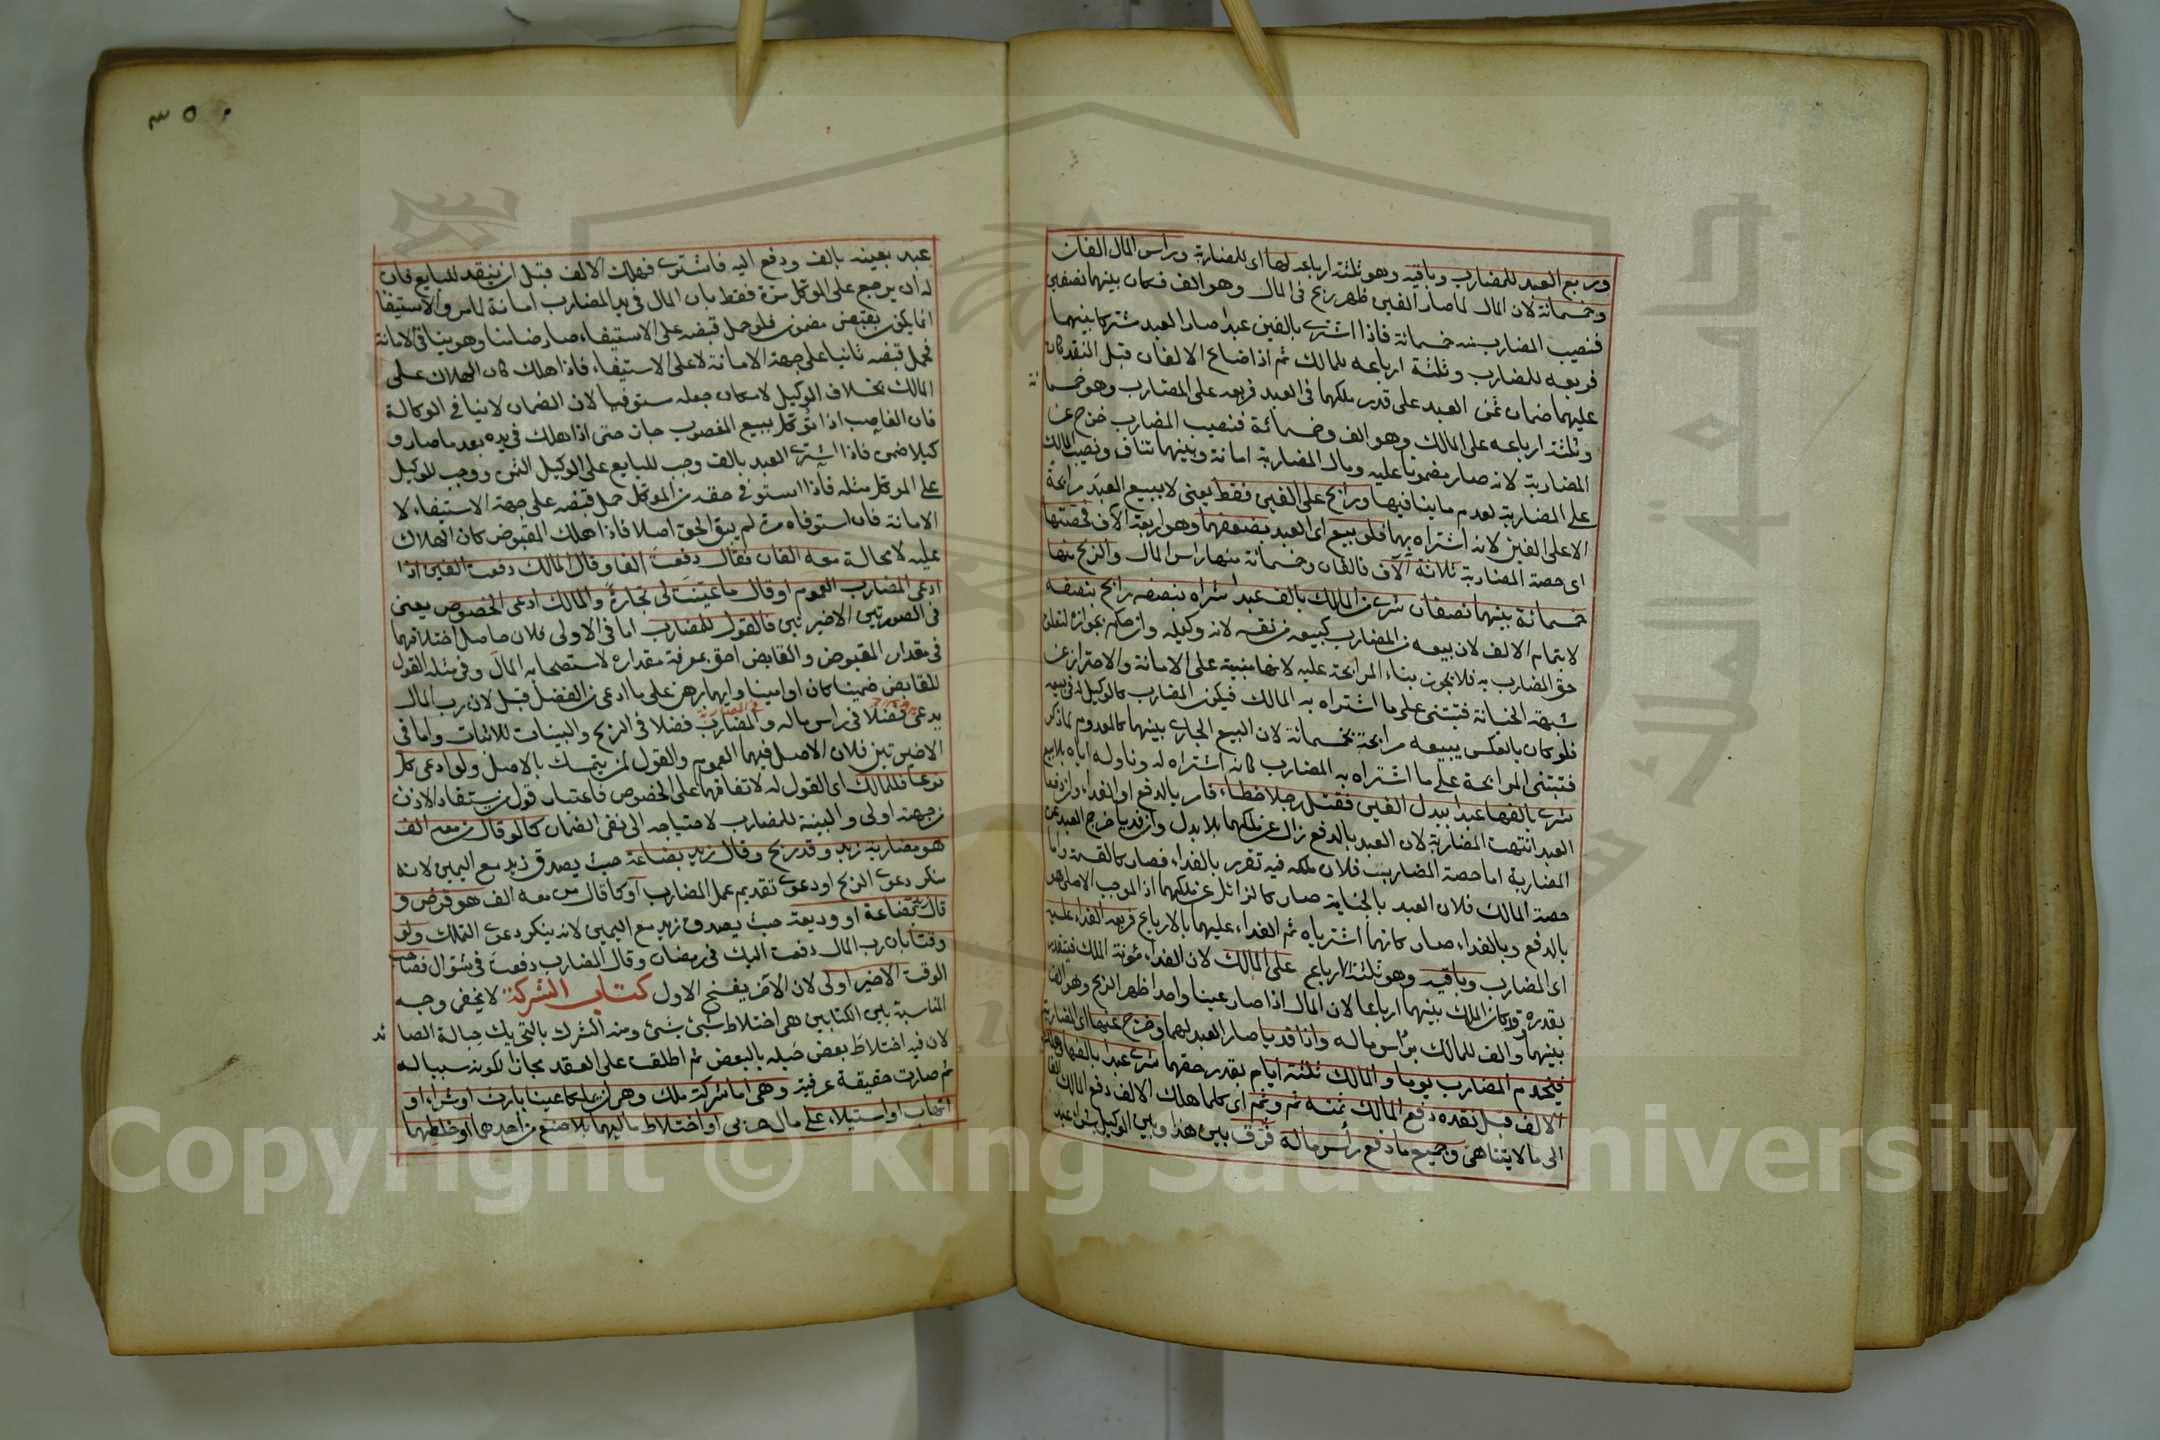 وربع العبد للمضارب وباقيه وهو ثلثة ارباعه لها اى للمضاربة وراس المال الفان
وخمسمائة لان المال لما صار الفين ظهر ربح فى المال وهو الف فكان بينهما نصفين
فنصيب المضارب منه خمسمائة فاذا اشترى بالفين عبدا صار العبد مشتركا بينهما
فربعه للمضارب وثلثة ارباعه للمالك ثم اذا ضاع الالفان قبل النقد كان
عليهما ضمان ثمن العبد على قدر ملكهما فى العبد فربعه على المضارب وهو خمسمائة
وثلثة ارباعه على المالك وهو الف وخمسمائة فنصيب المضارب خرج عن
المضاربة لانه صار مضمونا عليه ومال المضاربة امانة وبينهما تناف ونصيب المالك
على المضاربة لعدم ما ينافيها ورابح على الفين فقط يعنى لا يبيع العبد مرابحة
الا على الفين لانه اشتراه بهما فلو بيع اى العبد بضعفهما وهو اربعة آلاف فحصتها
اى حصة المضاربة ثلاثة آلاف فالفان وخمسمائة منها راس المال والربح منها
خمسمائة بينهما نصفان شرى من المالك بالف عبدا شراه بنصفه رابح بنصفه
لا بتمام الالف لان بيعه من المضارب كبيعه من نفسه لانه وكيله وان حكم بجوازه لتعلق
حق المضارب به فلا يجوز بناء المرابحة عليه لانها مبنية على الامانة والاحتراز عن
شبهة الخيانة فتبتنى على ما اشتراه به المالك فيكون المضارب كالوكيل له فى بيعه
فلو كان بالعكس يبيعه مرابحة بخمسمائة لان البيع الجارى بينهما كالمعدوم لما ذكر
فتبتنى المرابحة على ما اشتراه به المضارب كانه اشتراه له وناوله اياه بلا بيع
شرى بالفها عبدا يبدل الفين فقتل رجلا خطاء فامر بالدفع او الفداء وان دفعا
العبد انتهت المضاربة لان العبد بالدفع زال عن ملكهما بلا بدل وان فديا خرج العبد عن
المضاربة اما حصة المضارب فلان ملكه فيه تقرر بالفداء فصار كالقسمة واما
حصة المالك فلان العبد بالجناية صار كالزائل عن ملكهما اذ الموجب الاصلى هو
بالدفع وبالفداء صار كانهما اشترياه ثم الفداء عليهما بالارباع فربعه الفداء عليه
اى المضارب وباقيه وهو ثلثة الارباع على المالك لان الفداء مؤنة الملك فيتقدر
بقدره وقد كان الملك بينهما ارباعا لان المال اذا صار عينا واحدا ظهر الربح وهو الف
بينهما والف للمالك براس ماله واذا فديا صار العبد لهما وخرج عنها اى المضاربة
فيخدم المضارب يوما والمالك ثلثة ايام بقدر حقهما شرى عبدا بالفها وهلك
الالف قبل نقده دفع المالك ثمنه ثم وثم اى كلما هلك الالف دفع المالك الفا
الى ما لا يتناهى وجميع ما دفع رأس ماله فرق بين هذا وبين الوكيل بشراء عبد
٣٥٠
عبد بعينه بالف ودفع اليه فاشترى فهلك الالف قبل ان ينقد للبايع فان
له ان يرجع على الموكل مرة فقط بان المال فى يد المضارب امانة لما مر والاستيفا
انما يكون بقبض مضمون فلو حمل قبضه على الاستيفاء صار ضامنا وهو ينافى الامانة
فحمل قبضه ثانيا على جهة الامانة لا على الاستيفاء فاذا هلك كان الهلاك على
المالك بخلاف الوكيل لامكان جعله مستوفيا لان الضمان لا ينافى الوكالة
فان الغاصب اذا توكل ببيع المغصوب جاز حتى اذا هلك فى يده بعد ما صار و
كيلا ضمن فاذا اشترى العبد بالف وجب للبايع على الوكيل الثمن ووجب للوكيل
على الموكل مثله فاذا استوفى حقه من الموكل حمل قبضه على جهة الاستيفاء لا
الامانة فان استوفاه مرة لم يبق الحق اصلا فاذا هلك المقبوض كان الهلاك
عليه لا محالة معه الفان فقال دفعت الفا وقال المالك دفعت الفين اذا
ادعى المضارب العموم او قال ما عينت لى تجارة والمالك ادعى الخصوص يعنى
فى الصورتين الاخيرتين فالقول للمضارب اما فى الاولى فلان حاصل اختلافهما
فى مقدار المقبوض والقابض احق بمعرفة مقداره لاستصحابه المال وفى مثله القول
للقابض ضمينا كان او امينا وايهما برهن على ما ادعى من الفضل قبل لان رب المال
يدعى فضلا فى راس ماله والمضارب فضلا فى الربح والبينات للاثبات واما فى
الاخيرتين فلان الاصل فيهما العموم والقول لمن يتمسك بالاصل ولو ادعى كل
نوعا فللمالك اى القول له لاتفاقهما على الخصوص فاعتبار قول من يستفاد الاذن
من جهته اولى والبينة للمضارب لاحتياجه الى نفى الضمان كما لو قال من معه الف
هو مضاربة زيد وقد ربح وقال زيد بضاعة حيث يصدق زيد مع اليمين لانه
منكر دعوى الربح او دعوى تقديم عمل المضارب او كما قال من معه الف هو قرض و
قال بضاعة او وديعة حيث يصدق زيد مع اليمين لانه ينكر دعوى التملك ولو
وقتا بان رب المال دفعت اليك فى رمضان وقال المضارب دفعت فى شوال فصاحب
الوقت الاخير اولى لان الآخر يفسخ الاول كتاب الشركة لا يخفى وجه
المناسبة بين الكتابين هى اختلاط شئ بشئ ومنه الشرك بالتحريك حبالة الصائد
لان فيه اختلاط بعض حبله بالبعض ثم اطلقت على العقد مجازا لكونه سببا له
ثم صارت حقيقة عرفية وهى اما شركة ملك وهى ان يملكا عينا بارث او شراء او
اتهاب او استيلاء على مال حربى او اختلاط ماليهما بلا صنع من احدهما او خلطهما
Copyright © King Saud University